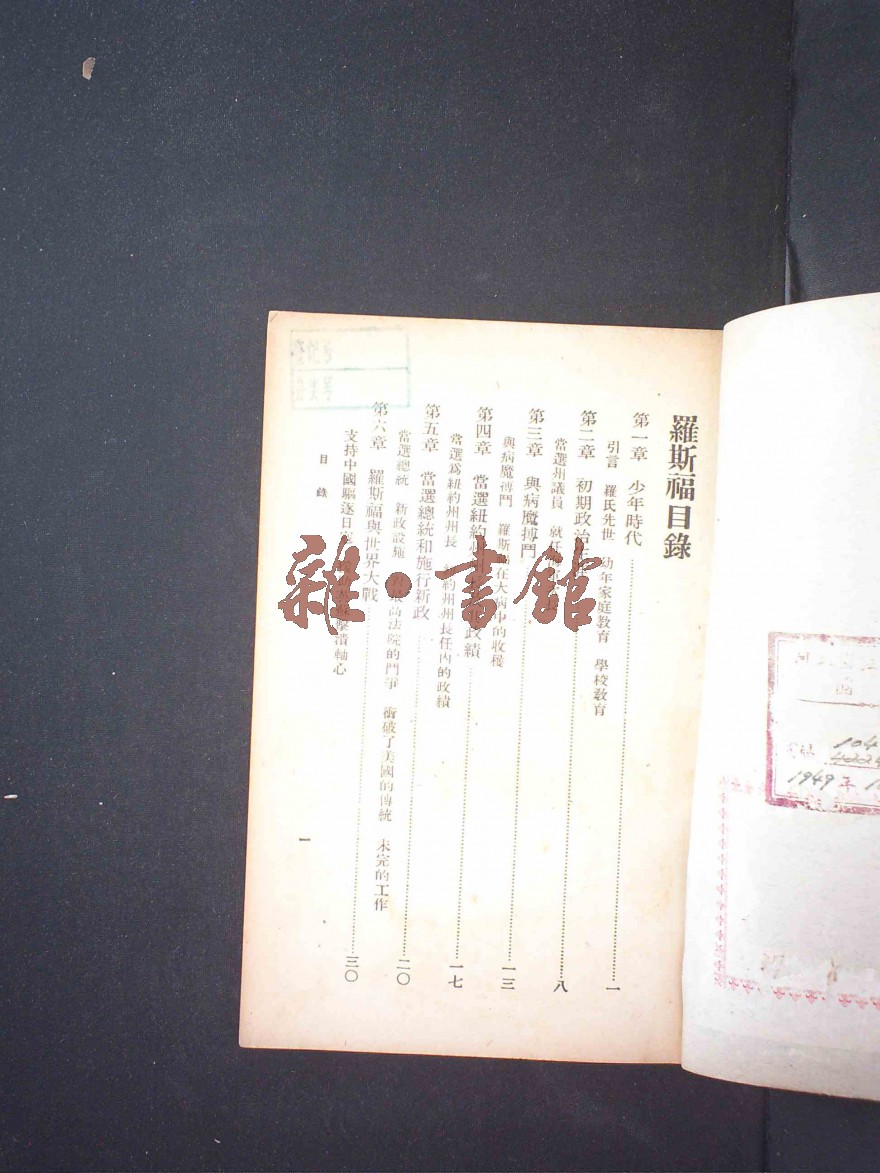 羅斯福目錄
第一章 少年時代 一
引言 羅氏先世 幼年家庭教育 學校教育
第二章 初期政治 八
當選州議員 就任
第三章 與病魔搏鬥 一三
與病魔搏鬥 羅斯福在大病中的收穫
第四章 當選紐約 政績 一七
當選爲紐約州州長 紐約州州長任內的政績
第五章 當選總統和施行新政 二〇
當選總統 新政設施 與最高法院的鬥爭 衝破了美國的傳統 未完的工作
第六章 羅斯福與世界大戰 三〇
支持中國驅逐日寇 擊潰軸心
目錄
一
雜·書館
登記号
104
1949年